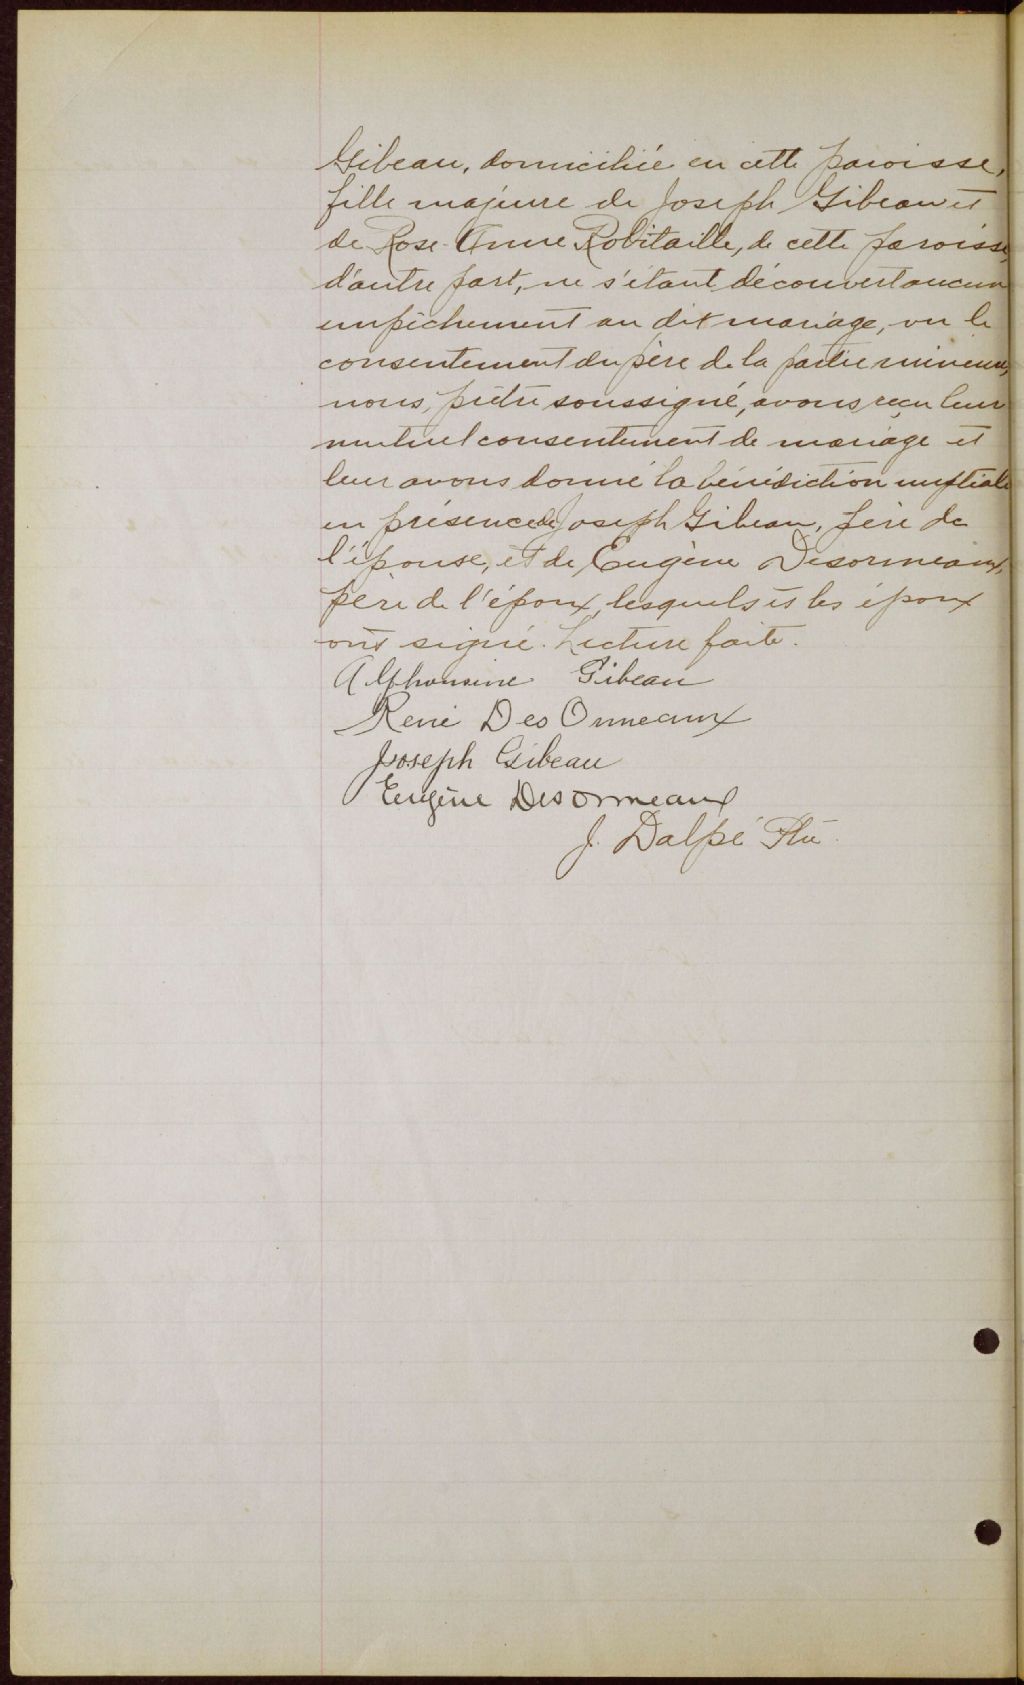 Gibeau, domiciliée en cette paroisse,
fille majeure de Joseph Gibeau et
de Rose-Anne Robitaille, de cette paroisse,
d'autre part, ne s'étant découvert aucun
empêchement au dit mariage, vu le
consentement du père de la partie mineure,
nous, prêtre soussigné, avons reçu leur
mutuel consentement de mariage et
leur avons donné la bénédiction nuptiale
en présence de Joseph Gibeau, père de
l'épouse, et de Eugène Desormeaux,
père de l'époux, lesquels et les époux
ont signé. Lecture faite.
Alphonsine Gibeau
René DesOrmeaux
Joseph Gibeau
Eugène Desormeaux
J. Dalpé Ptre.